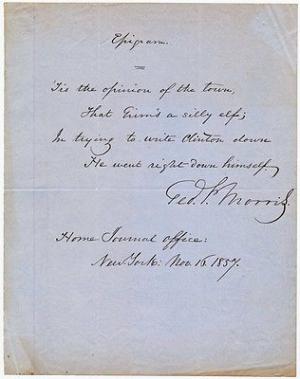 Epigram.
'Tis the opinion of the town,
That Grim's a silly elf;
In trying to write Clinton down
He went right down himself.
Geo. P. Morris.
Home Journal office:
New York: Nov. 16. 1857.